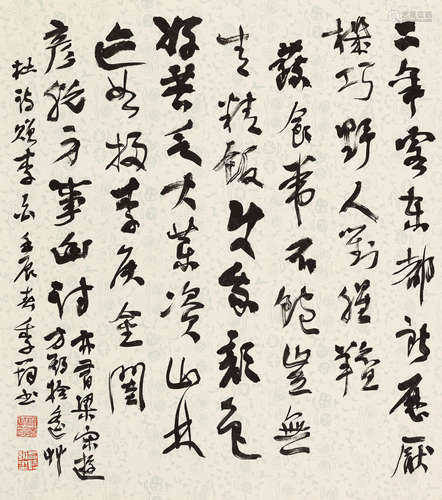 二年客東都所歷厭
機巧野人對腥羶
蔬食常不飽豈無
青精飯使我顏色
好苦乏大藥資山林
迹如掃李侯金閨
彥脫身事幽討
亦有梁宋遊
方期拾瑤草
杜詩贈李白 壬辰春李書